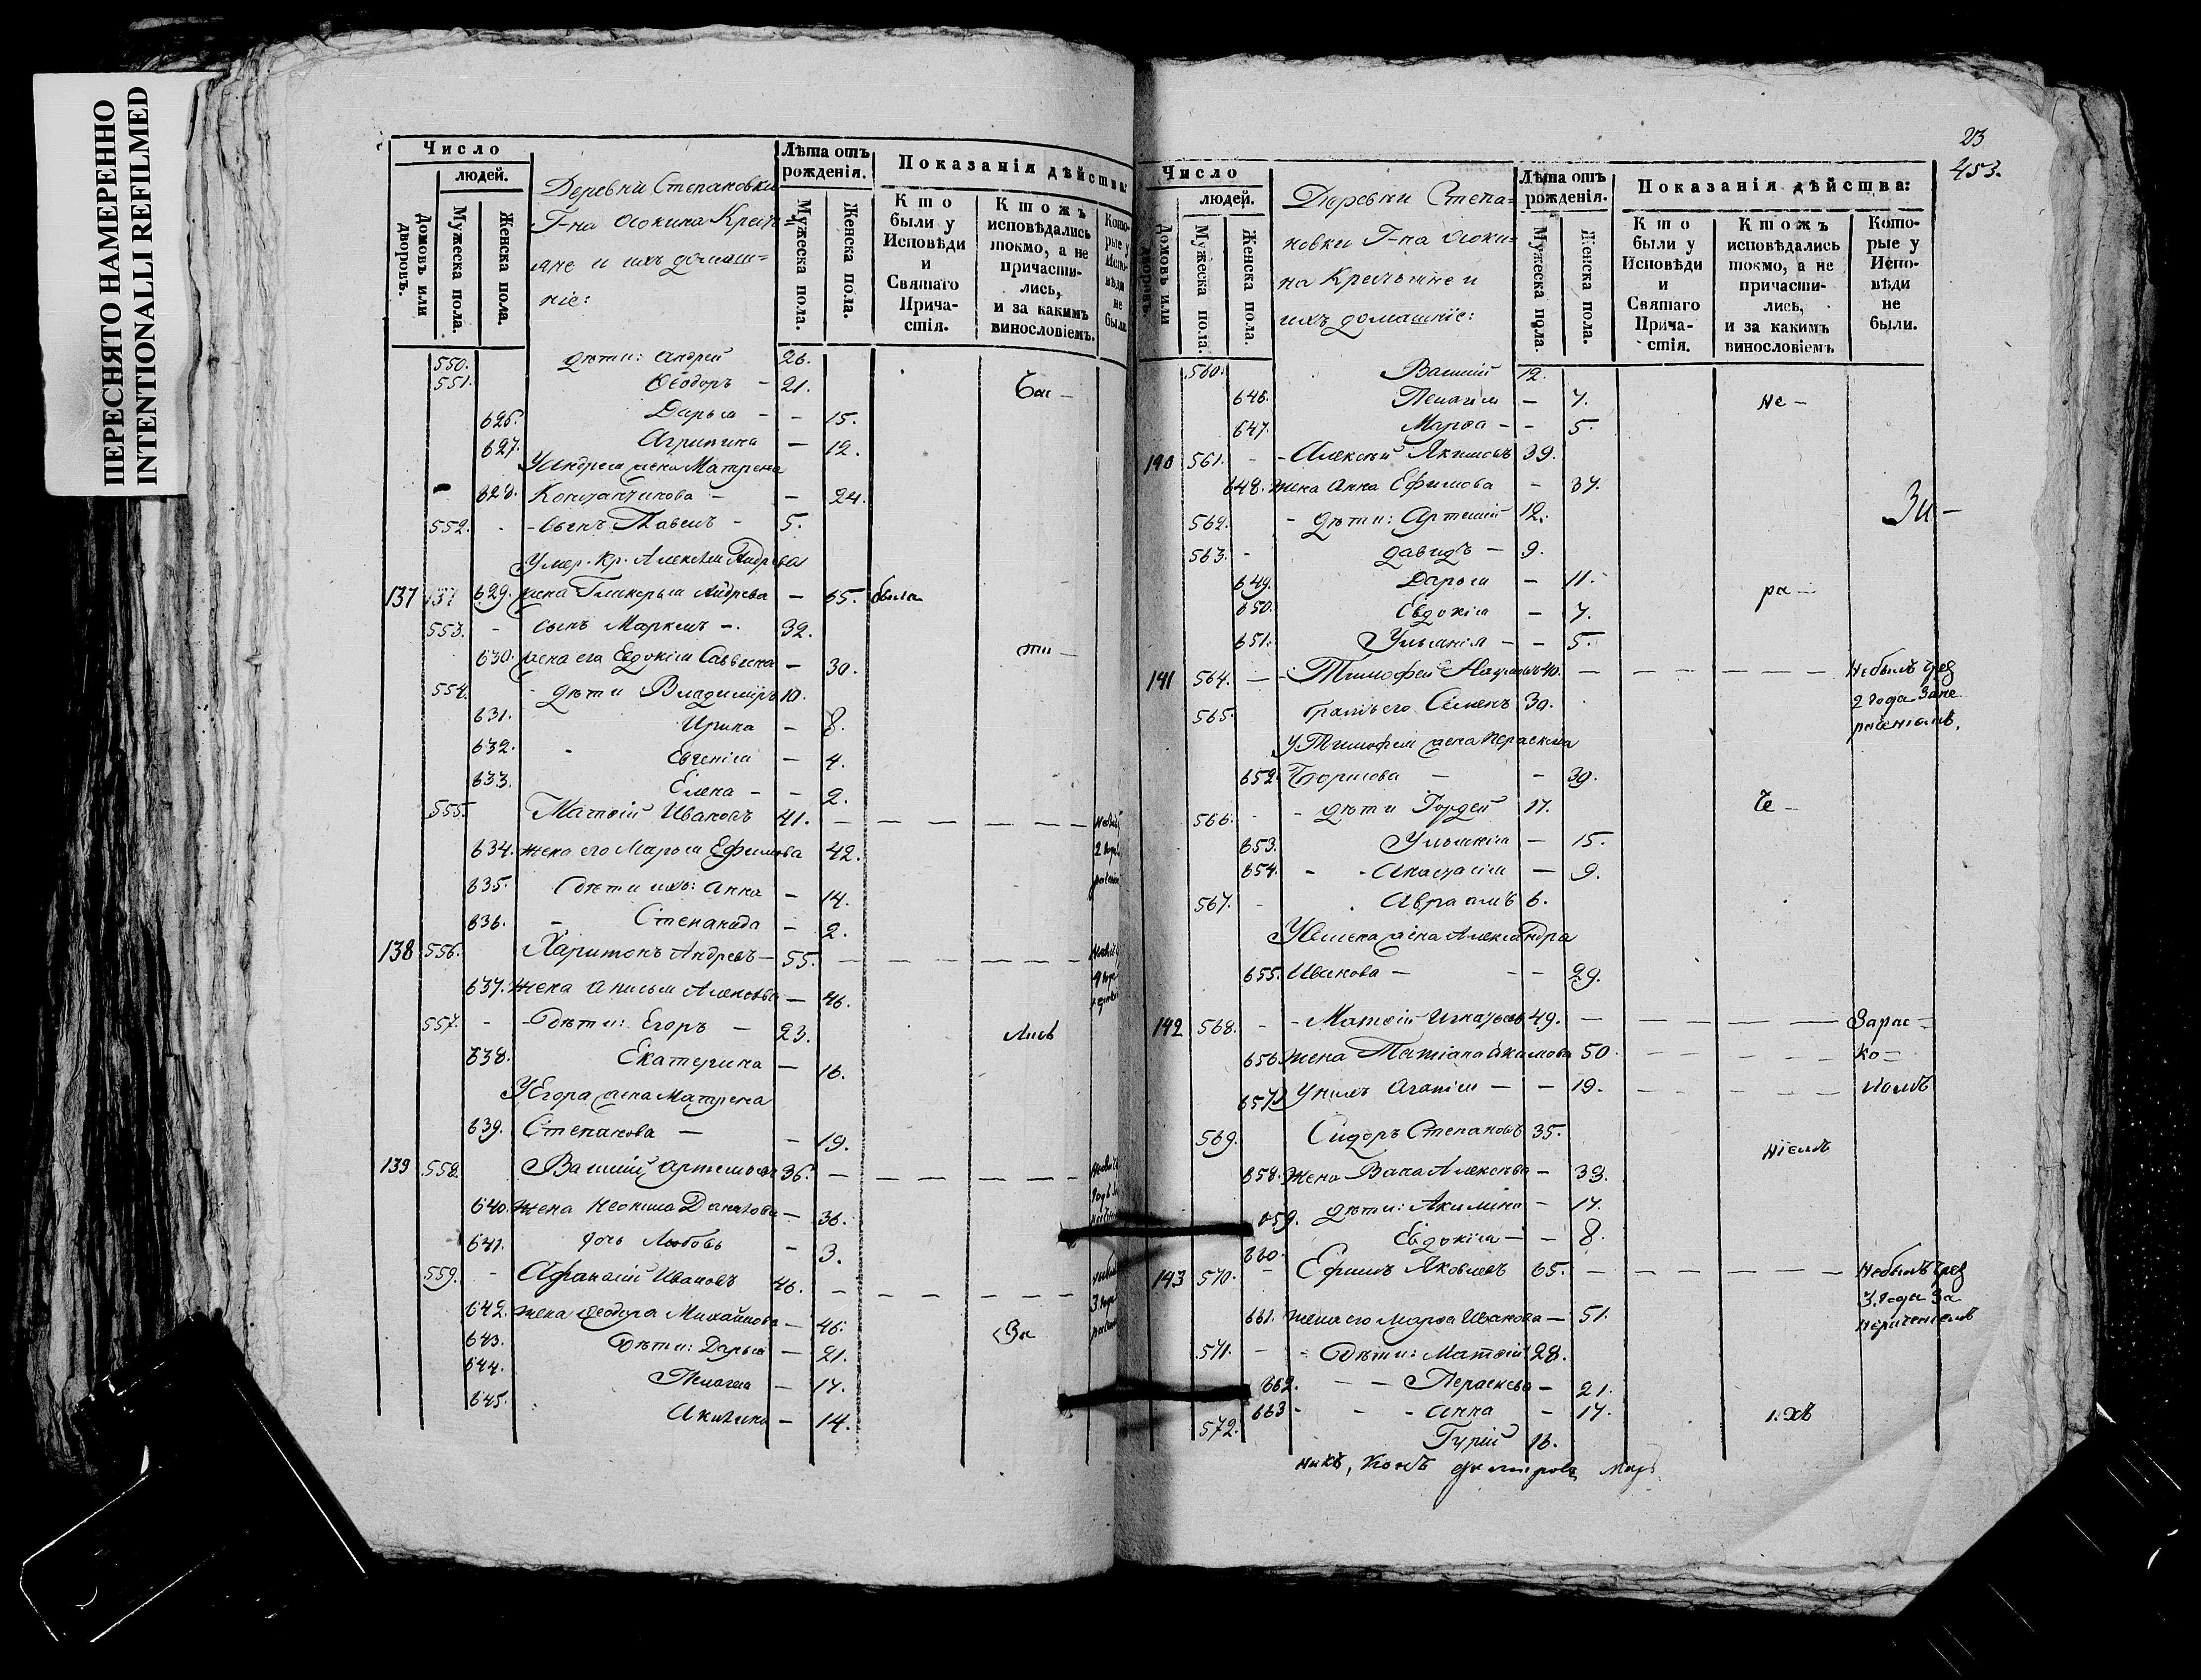 ПЕРЕСНЯТО НАМЕРЕННО
INTENTIONALLI REFILMED
Число
людей.
Домовъ или дворовъ.
Мужеска пола.
Женска пола.
Деревни Степановки
Г-на Осокина Крестъ=
яне и ихъ домаш=
ніе:
Лѣта отъ рожденія.
Мужеска пола.
Женска пола.
Показанія дѣйства:
Кто были у Исповѣди и Святаго Прича-стія.
Ктожъ исповѣдались токмо, а не причасти-лись, и за какимъ винословіемъ.
Кото-рые у Испо-вѣди не были.
550. дѣти: Андрей 26.
551. Ѳеодоръ - 21.
626. Дарья - - 15.
627. Агрипина - 12.
У Андрея жена Матрена
628. Константинова - - 24.
552. - - сынъ Павелъ - 5.
Умер. Кр. Алексѣя Андрева
137 137 629. жена Гликерья Андрева - 65. была
553. - сынъ Маркелъ - 32.
630. жена его Евдокія Саввина - 30.
554. - дѣти Владимiръ 10.
631. Ирина - 8.
632. Евгенія - 4.
633. Елена - - 2.
555. Матѳій Ивановъ 41. -
634. жена его Марья Ефимова 42.
635. дѣти ихъ: Анна - 14.
636. - Степанида - 2.
138 556. Харитонъ Андревъ - 55. -
637. жена Анисья Алексѣева - 46.
557. - - дѣти: Егоръ - 23.
638. Екатерина - 16.
У Егора жена Матрена
639. Степанова - - 19.
139 558. Василій Артемьевъ 36. -
640. жена Неонила Данилова - 36.
641. дочь Любовь - 3.
559. - Афанасій Ивановъ 46. -
642. жена Ѳеодора Михайлова - 46.
643. дѣти: Дарья - 21.
644. Пелагея - 17.
645. Акилина - 14.
23
453.
Число
людей.
Домовъ или дворовъ.
Мужеска пола.
Женска пола.
Деревни Степа=
новки Г-на Осоки=
на Крестьяне и
ихъ домашніе:
Лѣта отъ рожденія.
Мужеска пола.
Женска пола.
Показанія дѣйства:
Кто были у Исповѣди и Святаго Прича-стія.
Ктожъ исповѣдались токмо, а не причасти-лись, и за какимъ винословіемъ
Кото-рые у Испо-вѣди не были.
560. Василій 12.
646. Пелагія - 7. Не -
647. Марѳа - - 5.
140 561. - - Алексѣй Якимовъ 39.
648. жена Анна Ефимова - 37.
562. - дѣти: Артемій 12.
563. - Давидъ - 9.
649. Дарья - 11. ра -
650. Евдокія - 7.
651. Ульянія - - 5.
141 564. - - Тимофей 40. - Небылъ чрез
2 года За не
раченіемъ.
565. братъ его Семенъ 30.
У Тимофея жена Параскева
652. - - 39.
566. - - дѣти Гордей 17. Че -
653. Ульянія - 15.
654. - - Анастасія - 9.
567. - Авраамъ 6.
У Семена жена Александра
655. Иванова - - - 29.
142 568. - - Матѳій Игнатьевъ 49. -
656. жена Татіана Акимова 50. - ко -
657. У нихъ Агапія - - 19. -
569. Сидоръ Степановъ 35.
ніемъ
658. жена Алексѣева - 33.
659. дѣти: Акилина - 17.
660. Евдокія - - 8.
143 570. Ефимъ Яковлевъ 65. - Небылъ чрез
3. года За
нераченіемъ
661. жена его Марѳа Иванова - 51.
571. - - дѣти: Матѳій 28.
662. - - Параскева - 21.
663 - - - Анна - 17.
572. Гурій 16.